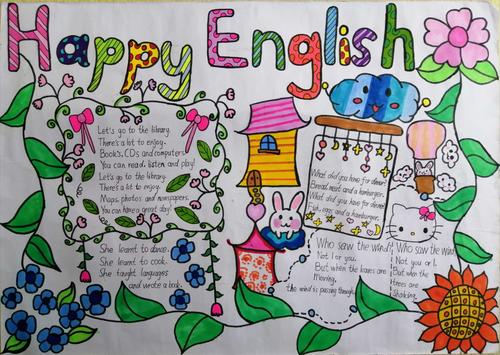 Happy English
Let's go to the library.
There's a lot to enjoy.
Books, CDs and computers.
You can read, listen and play!
Let's go to the library.
There's a lot to enjoy.
Maps, photos and newspapers.
You can have a great day!
She learnt to dance.
She learnt to cook.
She taught languages
and wrote a book.
What did you have for dinner?
Bread, meat and a hamburger.
What did you have for dinner?
Fish, egg and a hamburger.
Who saw the wind?
Not I or you.
But when the leaves are
the wind is passing through.
Who saw the wind
Not you or I.
But when the
trees are